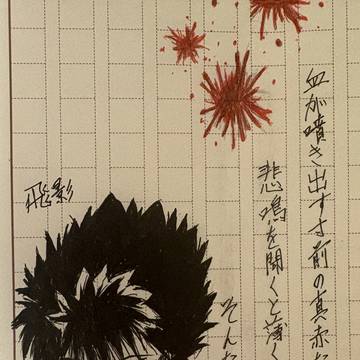 血が噴き出す寸前の真赤な
悲鳴を聞くと薄く
そんな
飛影